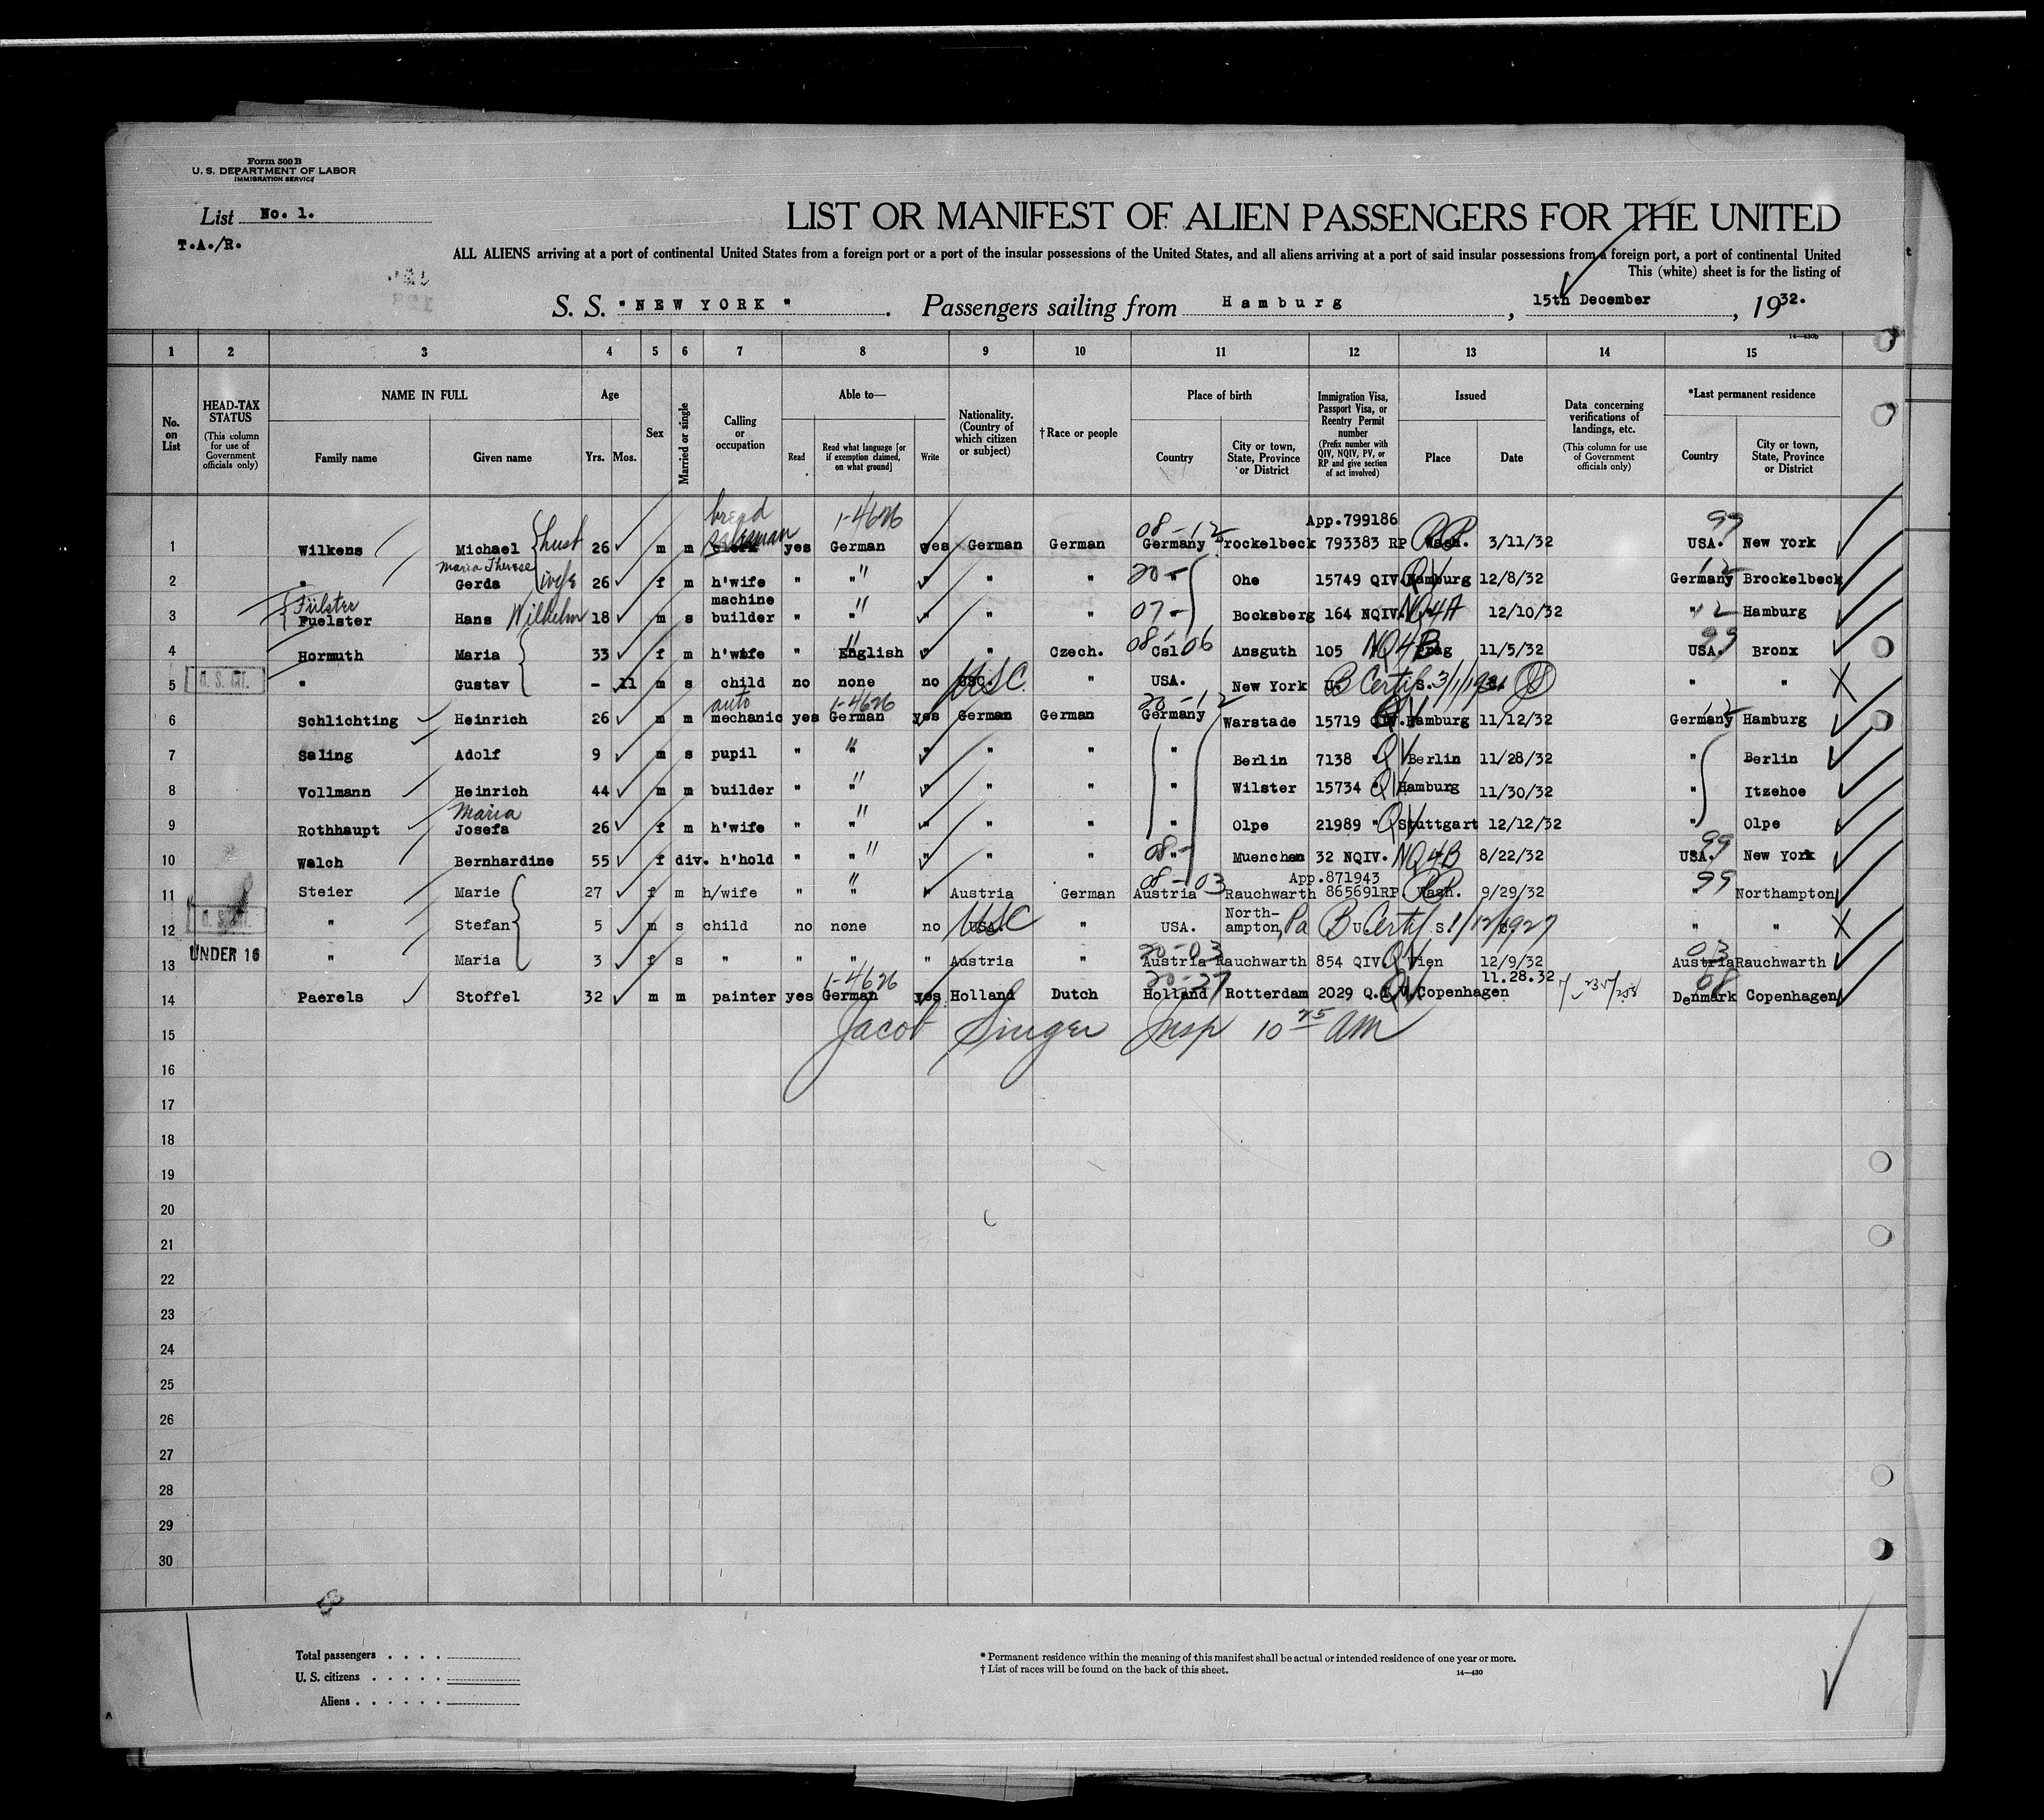 Form 500 B
U. S. DEPARTMENT OF LABOR
IMMIGRATION SERVICE
List No. 1.
T.A./R.
LIST OR MANIFEST OF ALIEN PASSENGERS FOR THE UNITED
ALL ALIENS arriving at a port of continental United States from a foreign port or a port of the insular possessions of the United States, and all aliens arriving at a port of said insular possessions from a foreign port, a port of continental United
This (white) sheet is for the listing of
S. S. "NEW YORK". Passengers sailing from Hamburg, 15th December, 1932.
14—430b
1 2 3 4 5 6 7 8 9 10 11 12 13 14 15
No. on List
HEAD-TAX STATUS (This column for use of Government officials only)
NAME IN FULL Family name Given name
Age Yrs. Mos.
Sex
Married or single
Calling or occupation
Able to— Read Read what language [or if exemption claimed, on what ground] Write
Nationality. (Country of which citizen or subject)
† Race or people
Place of birth Country City or town, State, Province or District
Immigration Visa, Passport Visa, or Reentry Permit number (Prefix number with QIV, NQIV, PV, or RP and give section of act involved)
Issued Place Date
Data concerning verifications of landings, etc. (This column for use of Government officials only)
*Last permanent residence Country City or town, State, Province or District
bread salesman 1-4626 08-12 App.799186 99
1 Wilkens Michael husb 26 m m clerk yes German yes German German Germany Brockelbeck 793383 RP Wash. 3/11/32 USA. New York
2 " Maria Therese Gerda wife 26 f m h'wife " " " " " 20- " Ohe 15749 QIV. QV Hamburg 12/8/32 12 Germany Brockelbeck
3 Fülster Fuelster Hans Wilhelm 18 m s machine builder " " " " " 07- " Bocksberg 164 NQIV. NQ4A 12/10/32 " 12 Hamburg
4 Hormuth Maria 33 f m h'wife " English " " Czech. 08-06 Csl. Ansguth 105 NQ4B Prag 11/5/32 99 USA. Bronx
5 U. S. CIT. " Gustav - 11 m s child no none no USC. USC " USA. New York U. B Certif S. 3/1/1931 " "
6 Schlichting Heinrich 26 m m auto mechanic yes 1-4626 German yes German German 20-12 Germany Warstade 15719 QIV. QV Hamburg 11/12/32 12 Germany Hamburg
7 Saling Adolf 9 m s pupil " " " " " " Berlin 7138 " QV Berlin 11/28/32 " Berlin
8 Vollmann Heinrich 44 m m builder " " " " " " Wilster 15734 " QV Hamburg 11/30/32 " Itzehoe
9 Rothhaupt Maria Josefa 26 f m h'wife " " " " " " Olpe 21989 " QV Stuttgart 12/12/32 " Olpe
10 Walch Bernhardine 55 f div. h'hold " " " " " 08- " Muenchen 32 NQIV. NQ4B 8/22/32 99 USA. New York
11 Steier Marie 27 f m h/wife " " " Austria German 08-03 Austria Rauchwarth App.871943 865691RP. Wash. 9/29/32 99 " Northampton
12 U. S. CIT. " Stefan 5 m s child no none no USA. USC " USA. North-ampton, Pa U. B Certif S. 1/12/1927 " "
13 UNDER 16 " Maria 3 f s " " " " Austria " 20-03 Austria Rauchwarth 854 QIV QV Wien 12/9/32 03 Austria Rauchwarth
14 Paerels Stoffel 32 m m painter yes 1-4626 German yes Holland Dutch 20-27 Holland Rotterdam 2029 Q.I.V. QV Copenhagen 11.28.32 08 Denmark Copenhagen
15 Jacob Singer Insp 10 25 AM
16
17
18
19
20
21
22
23
24
25
26
27
28
29
30
Total passengers
U. S. citizens
Aliens
* Permanent residence within the meaning of this manifest shall be actual or intended residence of one year or more.
† List of races will be found on the back of this sheet. 14—430